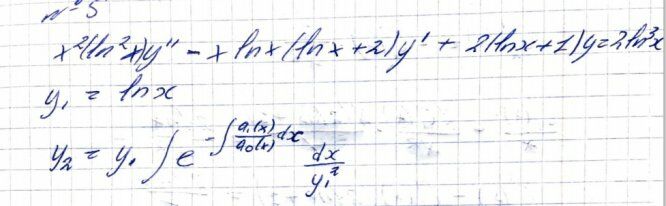 № 5
x²(ln²x)y'' - x lnx(lnx+2)y' + 2(lnx+1)y = 2ln³x
y₁ = lnx
y₂ = y₁ ∫ e^(-∫ a₁(x)/a₀(x) dx) dx/y₁²